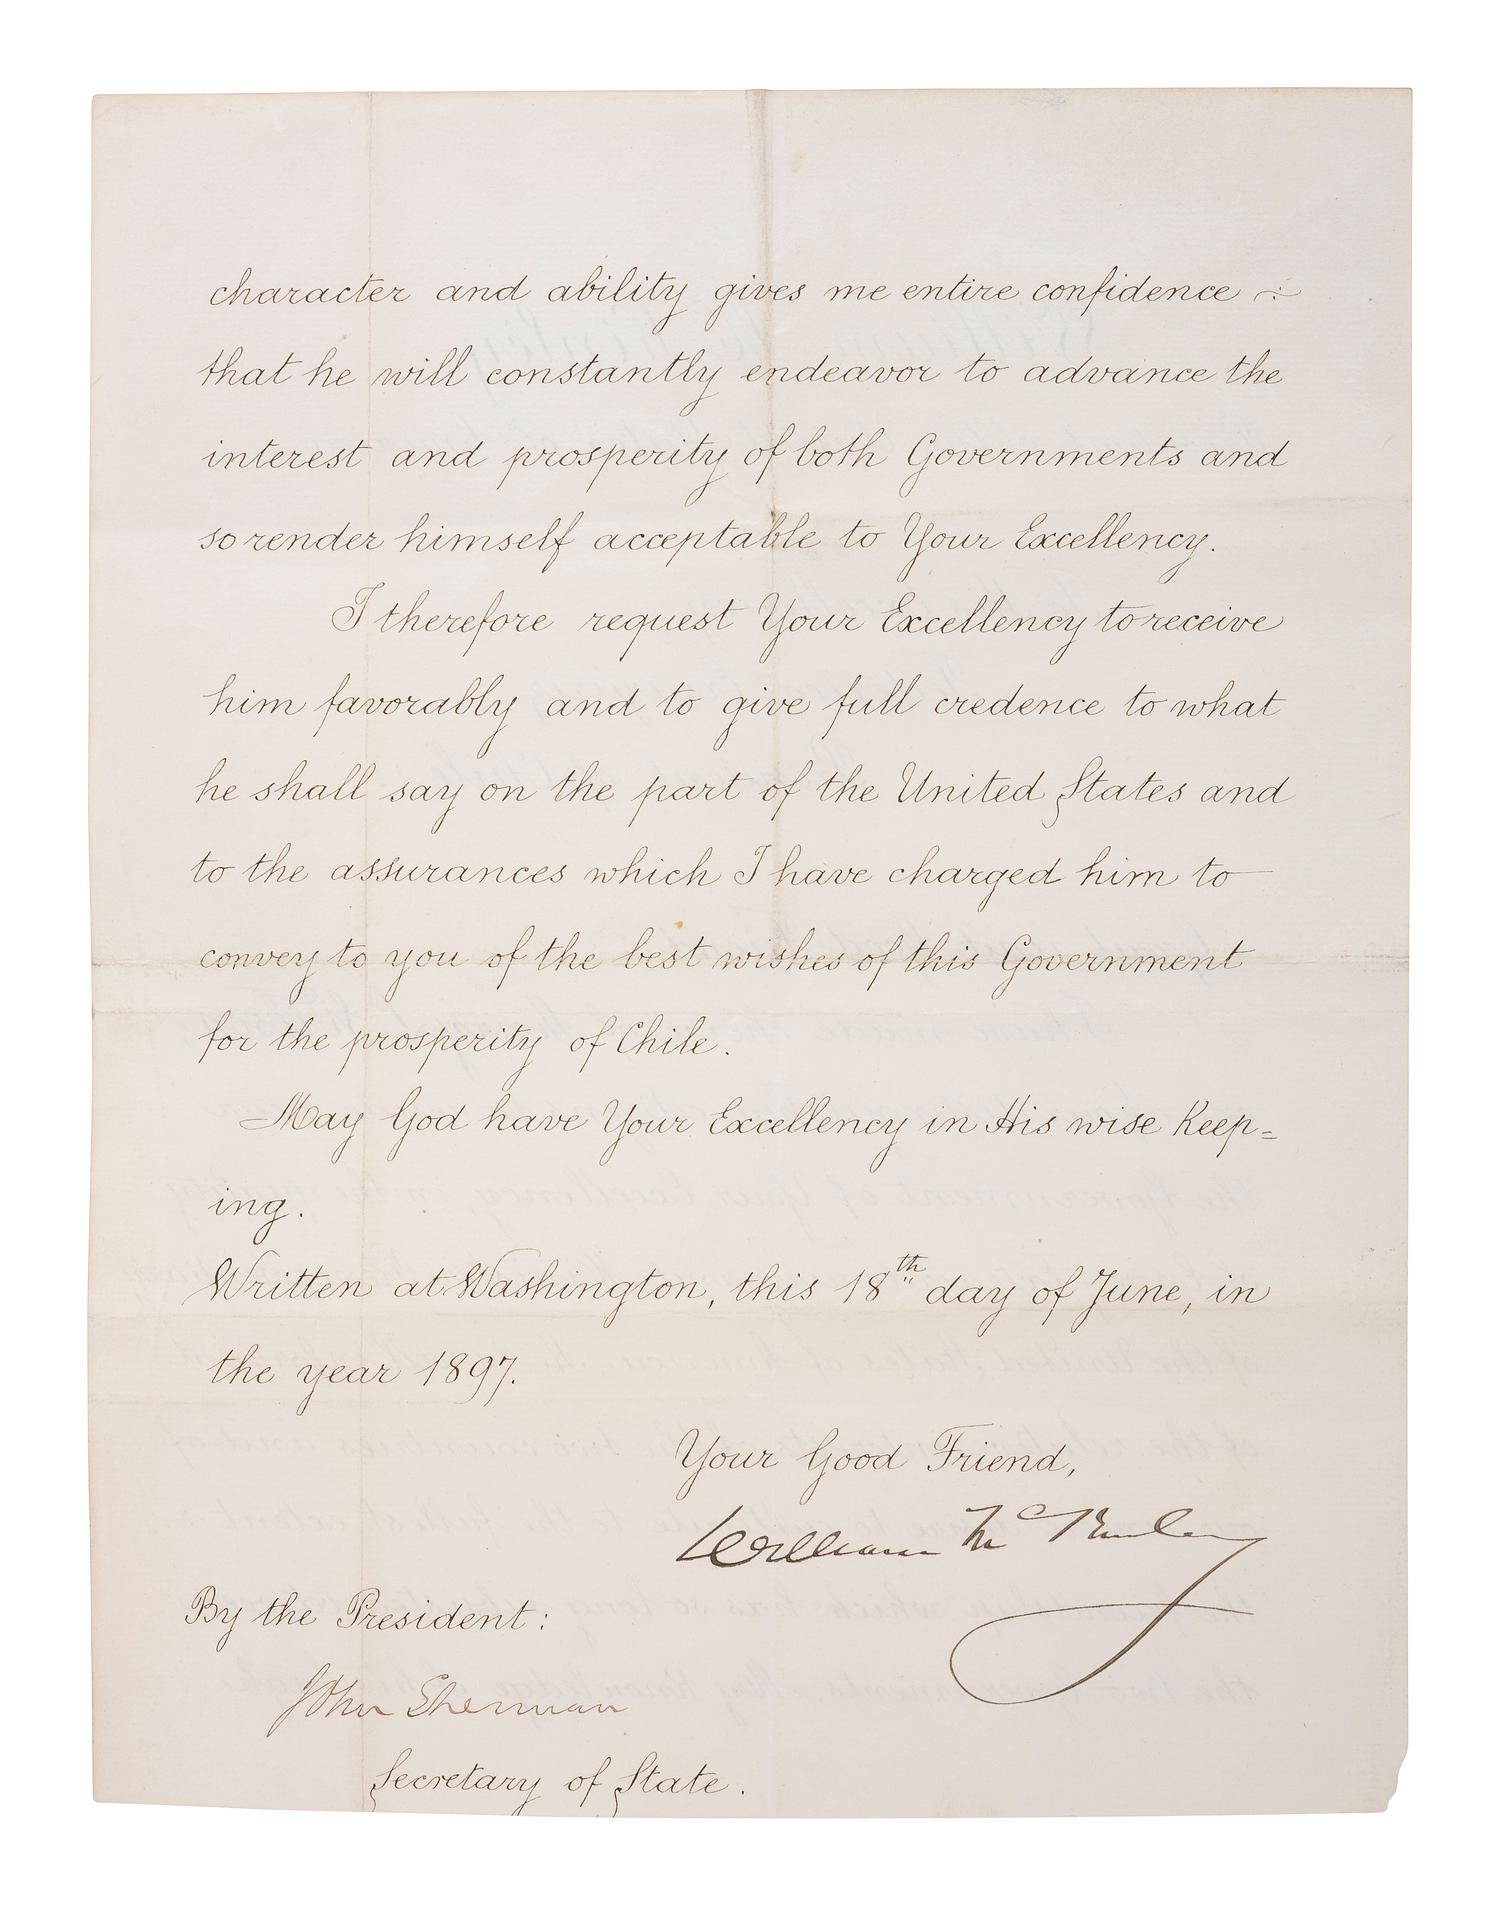 character and ability gives me entire confidence
that he will constantly endeavor to advance the
interest and prosperity of both Governments and
so render himself acceptable to Your Excellency.
I therefore request Your Excellency to receive
him favorably and to give full credence to what
he shall say on the part of the United States and
to the assurances which I have charged him to
convey to you of the best wishes of this Government
for the prosperity of Chile.
May God have Your Excellency in His wise Keep=
ing.
Written at Washington, this 18th day of June, in
the year 1897.
Your Good Friend,
William McKinley
By the President:
John Sherman
Secretary of State.